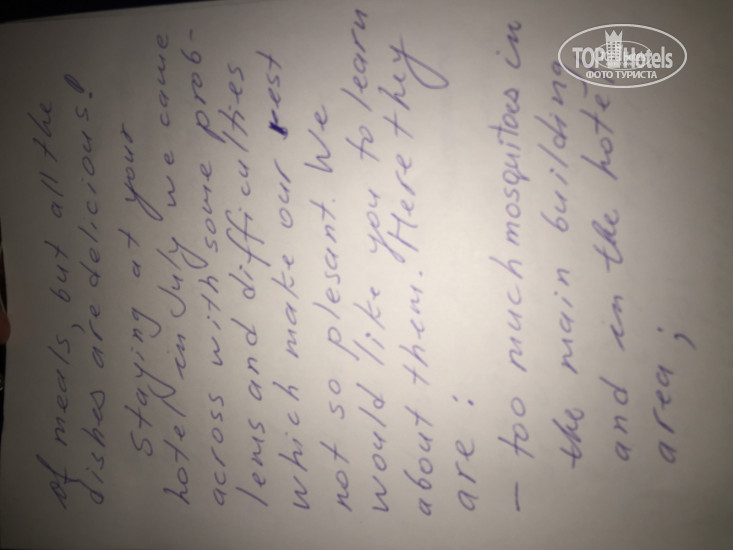 of meals, but all the
dishes are delicious!
Staying at your
hotel in July we came
across with some prob-
lems and difficulties
which make our rest
not so plesant. We
would like you to learn
about them. Here they
are:
- too much mosquitoes in
the main building
and in the hotel
area;
TOP Hotels
ФОТО ТУРИСТА